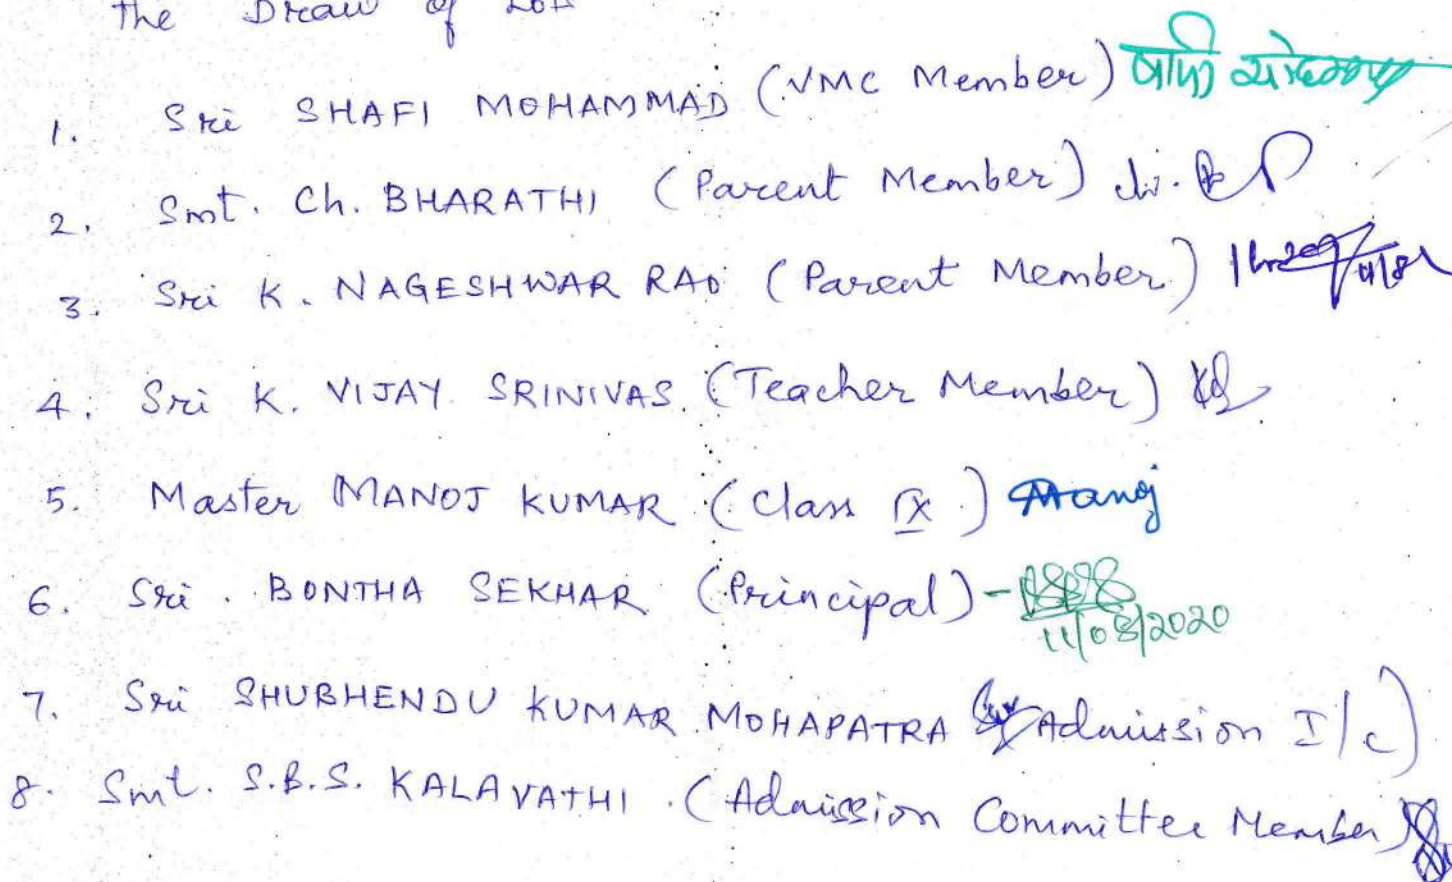 the Draw of Lots
1. Sri SHAFI MOHAMMAD (VMC Member) शफि मोहम्मद
2. Smt. Ch. BHARATHI (Parent Member) ch.
3. Sri K. NAGESHWAR RAO (Parent Member)
4. Sri K. VIJAY SRINIVAS. (Teacher Member)
5. Master MANOJ KUMAR (Class IX) Manoj
6. Sri. BONTHA SEKHAR (Principal) - 11/08/2020
7. Sri SHUBHENDU KUMAR MOHAPATRA (Admission I/c)
8. Smt. S.B.S. KALAVATHI. (Admission Committee Member)